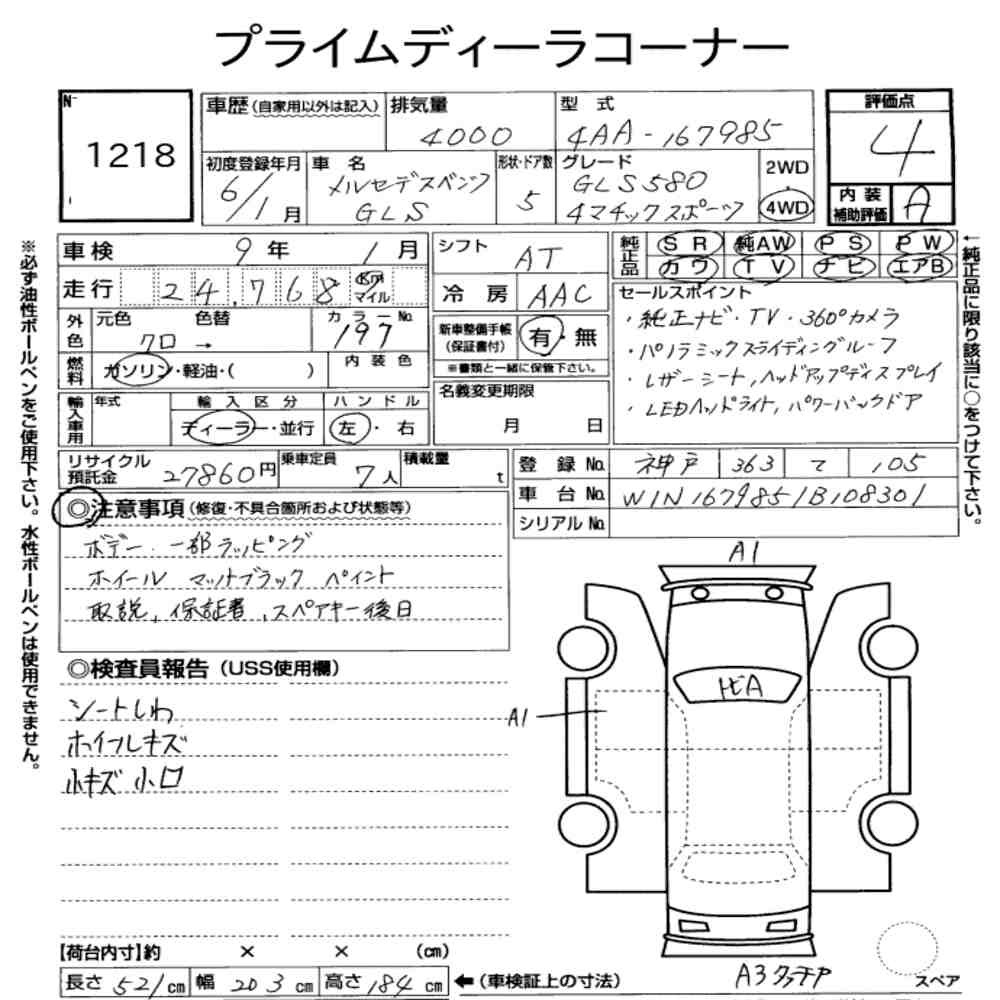 プライムディーラコーナー
No. 1218
車歴(自家用以外は記入) 排気量 4000 型式 4AA-167985
初度登録年月 6/1月 車名 メルセデスベンツ GLS 形状・ドア数 5 グレード GLS580 4マチックスポーツ 2WD 4WD
評価点 4
内装補助評価 A
車検 9年 1月
走行 24,768 Km マイル
外色 元色 クロ → 色替 カラーNo. 197
燃料 ガソリン・軽油・( ) 内装色
輸入車用 年式 輸入区分 ディーラー・並行 ハンドル 左・右
リサイクル預託金 27860円 乗車定員 7人 積載量 t
シフト AT
冷房 AAC
新車整備手帳(保証書付) 有・無
※書類と一緒に保管下さい。
名義変更期限 月 日
純正品 SR 純AW PS PW
カワ TV ナビ エアB
セールスポイント
・純正ナビ・TV・360°カメラ
・パノラミックスライディングルーフ
・レザーシート,ヘッドアップディスプレイ
・LEDヘッドライト,パワーバックドア
登録No. 神戸 363 て 105
車台No. W1N1679851B108301
シリアルNo.
◎注意事項(修復・不具合箇所および状態等)
ボデー 一部ラッピング
ホイール マットブラック ペイント
取説,保証書,スペアキー後日
◎検査員報告(USS使用欄)
シートしわ
ホイールキズ
小キズ 小ロ
A1
トビA
A1
A3
スペア
【荷台内寸】約 × × (cm)
長さ 521cm 幅 203cm 高さ 184cm ←(車検証上の寸法)
※必ず油性ボールペンをご使用下さい。水性ボールペンは使用できません。
←純正品に限り該当に○をつけて下さい。